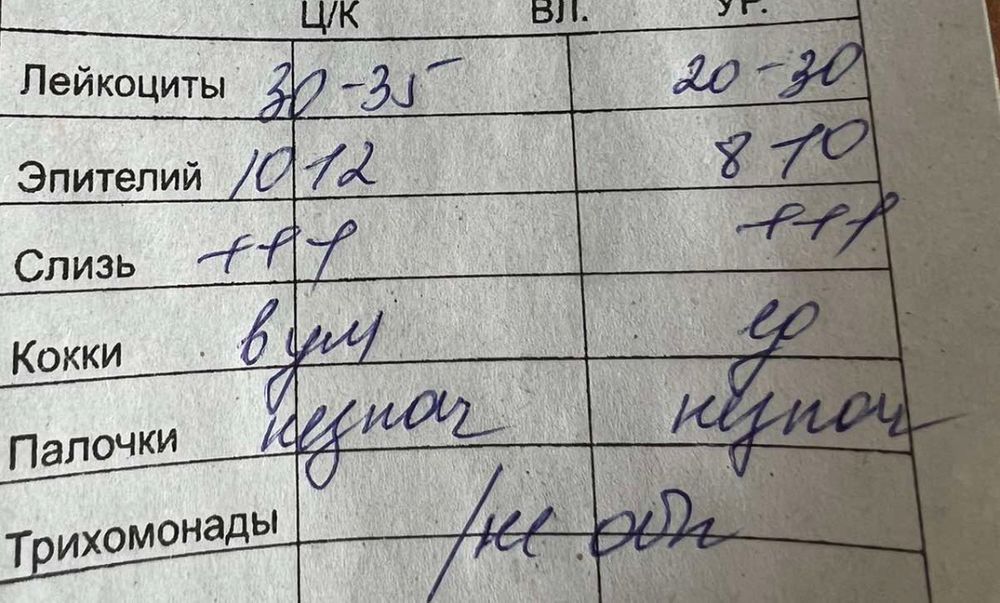 Ц/К ВЛ. УР.
Лейкоциты 30-35 20-30
Эпителий 10-12 8-10
Слизь +++ +++
Кокки в ум ед
Палочки незнач незнач
Трихомонады не обн